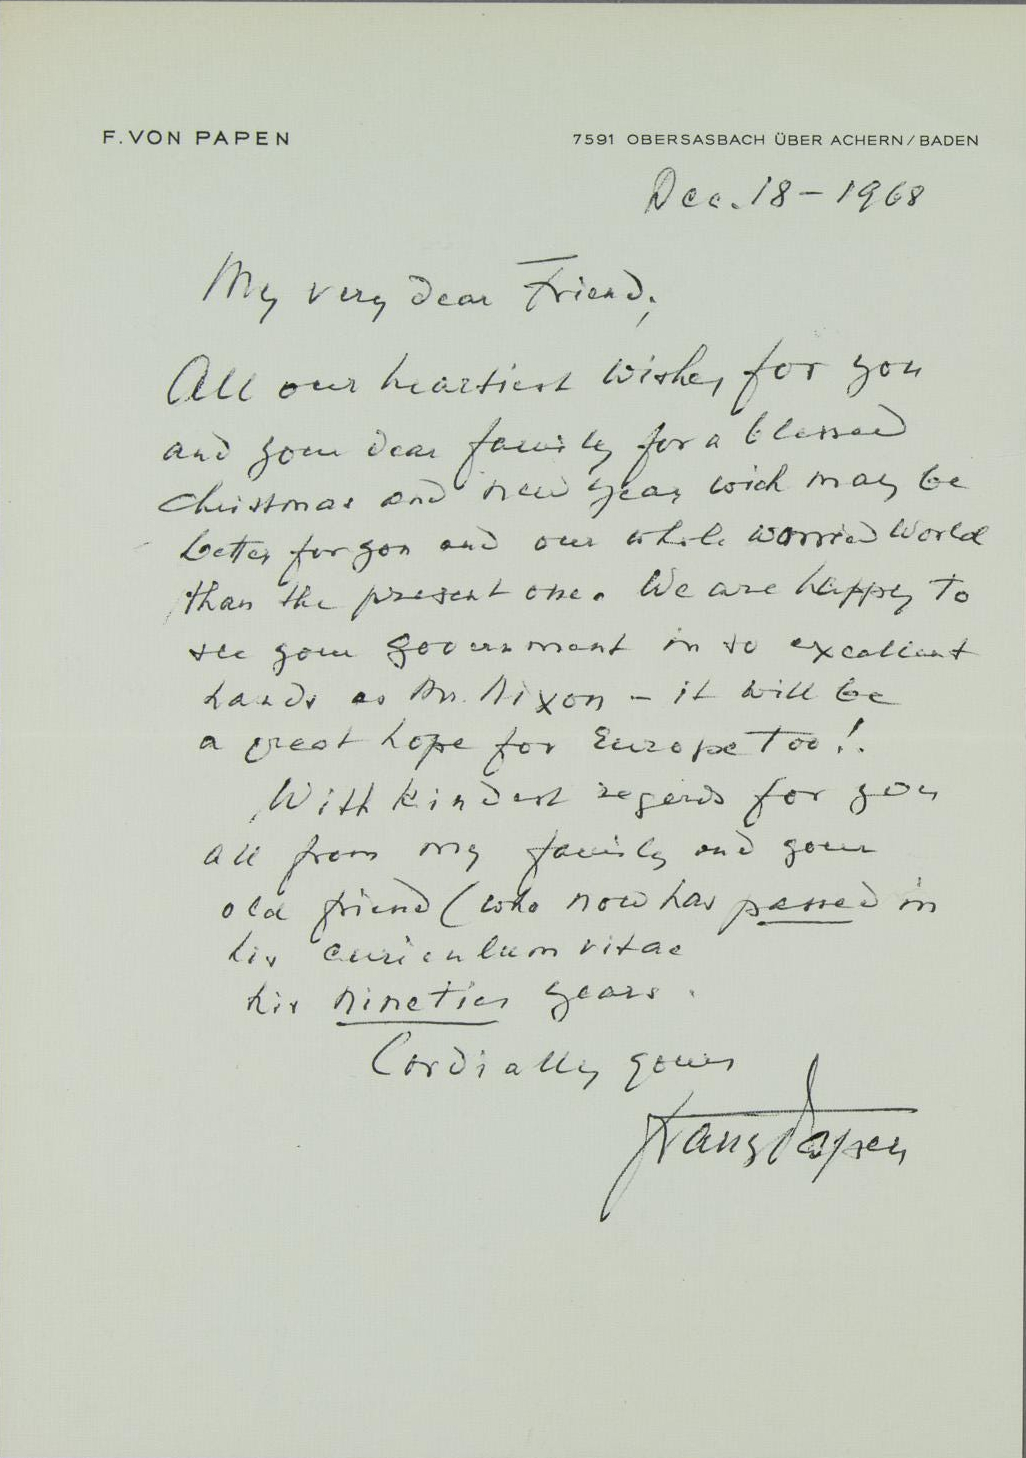 F. VON PAPEN
7591 OBERSASBACH ÜBER ACHERN/BADEN
Dec. 18 – 1968
My very dear Friend,
All our heartiest wishes for you
and your dear family for a blessed
christmas and new year wich may be
better for you and our whole worried World
than the present one. We are happy to
see your government in so excellent
hands as Mr. Nixon – it will be
a great hope for Europe too!.
With kindest regards for you
all from my family and your
old friend (who now has passed in
his curiculum vitae
his nineties years.
Cordially yours
Franz Papen